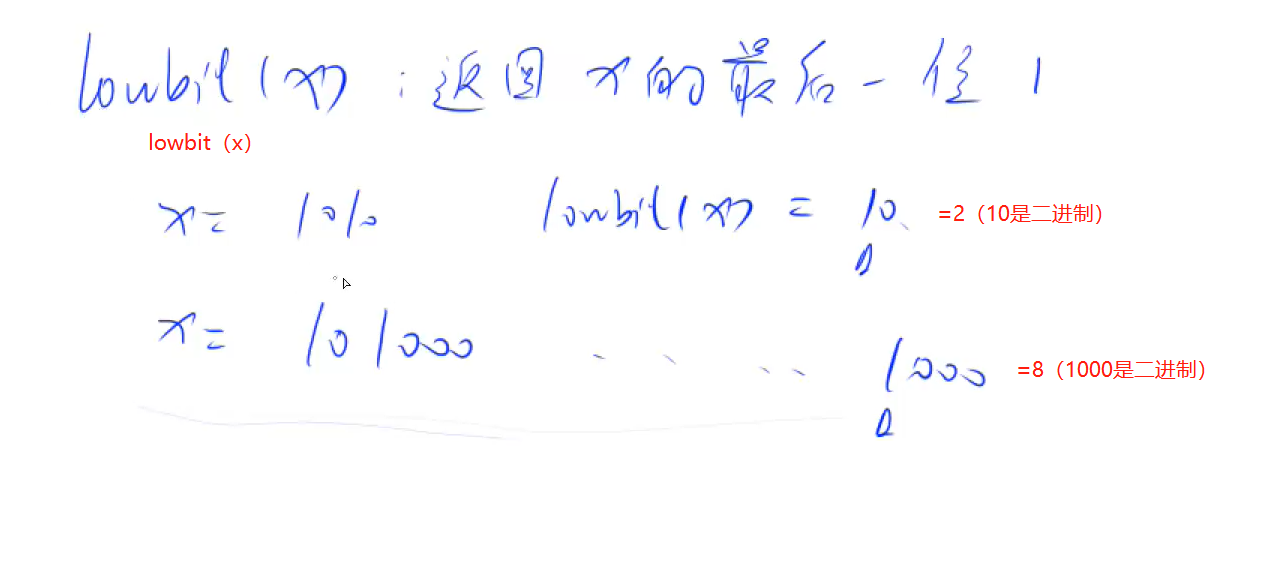 lowbit(x) : 返回 x 的最后一位 1
lowbit（x）
x= 1010 lowbit(x) = 10 =2（10是二进制）
x= 101000 ..... 1000 =8（1000是二进制）